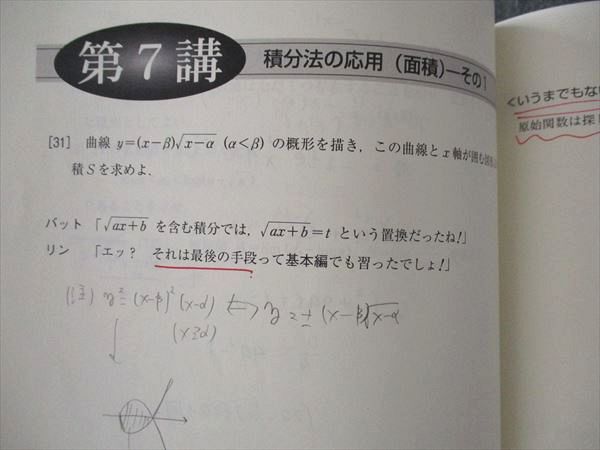 第7講
積分法の応用(面積)—その1
[31] 曲線 y=(x−β)√(x−α) (α<β) の概形を描き,この曲線とx軸が囲む
積Sを求めよ.
バット 「√(ax+b) を含む積分では,√(ax+b)=t という置換だったね!」
リン 「エッ? それは最後の手段って基本編でも習ったでしょ!」
(注) y²=(x−β)²(x−α) ⟺ y=±(x−β)√(x−α)
(x≧α)
くいうまでもない
原始関数は探し